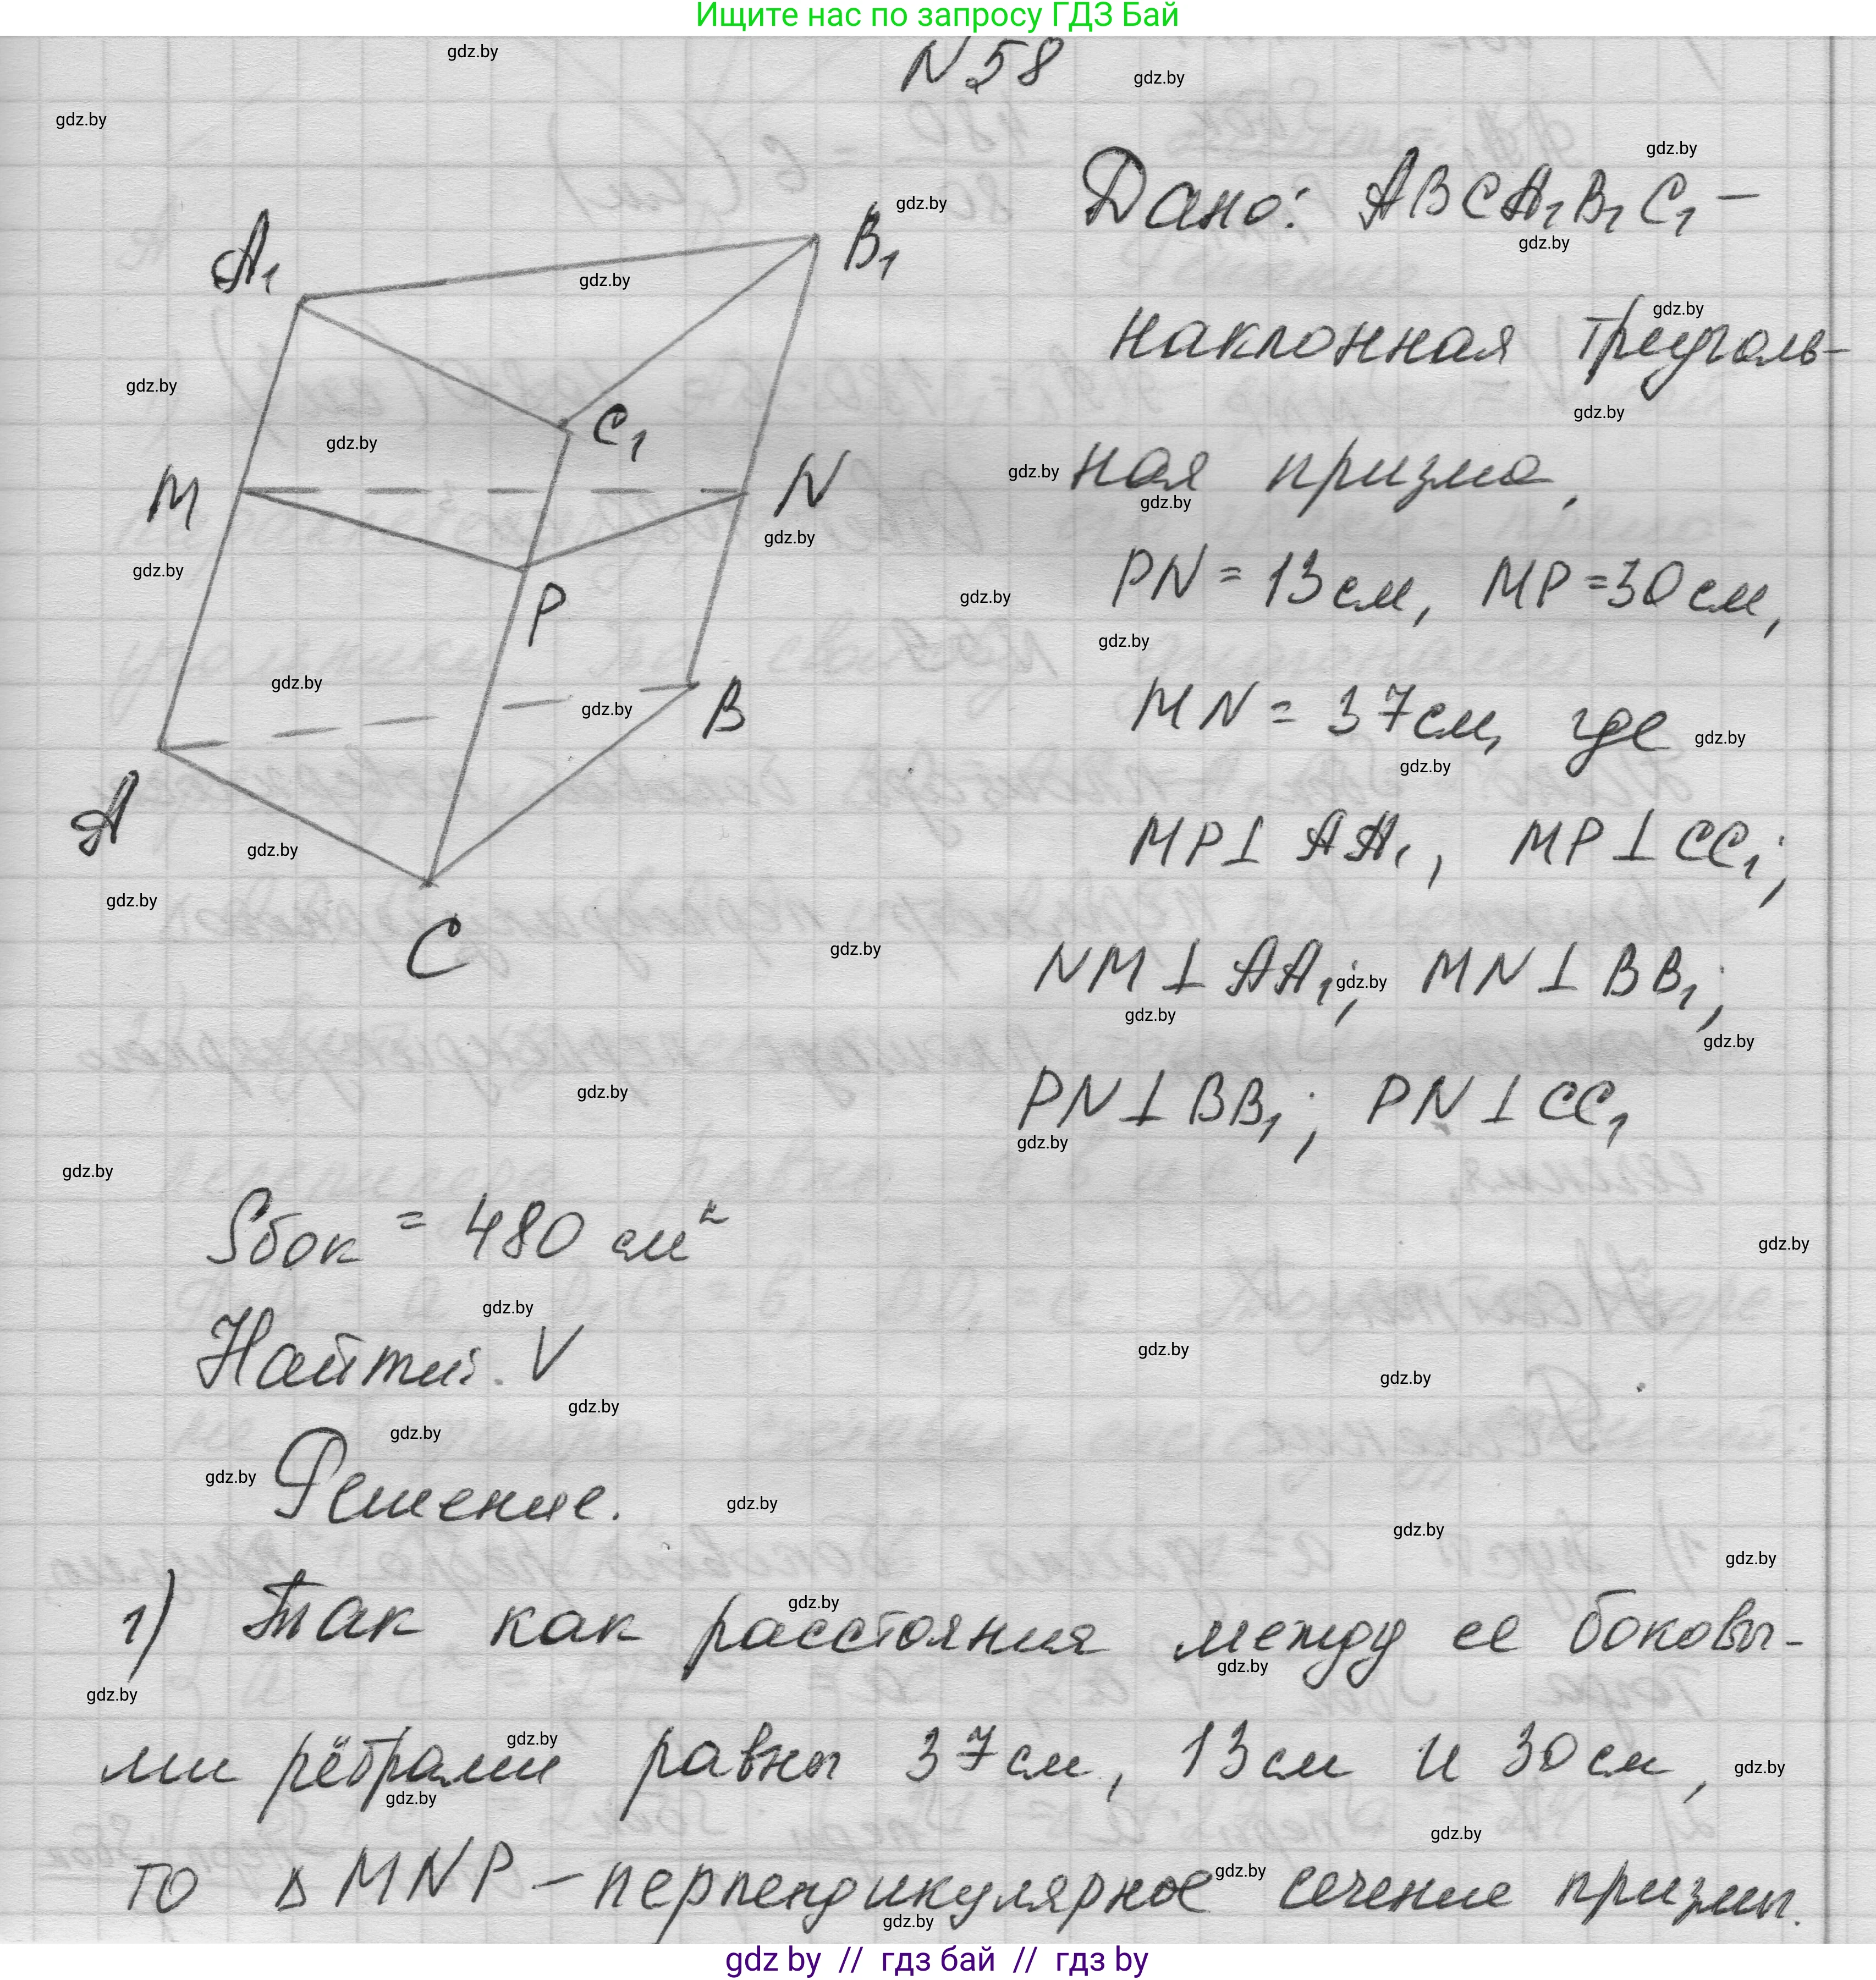 Ищите нас по запросу ГДЗ Бай
N 58
A₁
B₁
C₁
M
N
P
A
B
C
Дано: ABCA₁B₁C₁ –
наклонная треуголь-
ная призма,
PN = 13 см, MP = 30 см,
MN = 37 см, где
MP ⊥ AA₁, MP ⊥ CC₁;
NM ⊥ AA₁; MN ⊥ BB₁;
PN ⊥ BB₁; PN ⊥ CC₁
Sбок = 480 см²
Найти: V
Решение.
1) Так как расстояния между ее боковы-
ми рёбрами равны 37 см, 13 см и 30 см,
то Δ MNP – перпендикулярное сечение призмы.
gdz by // гдз бай // гдз by